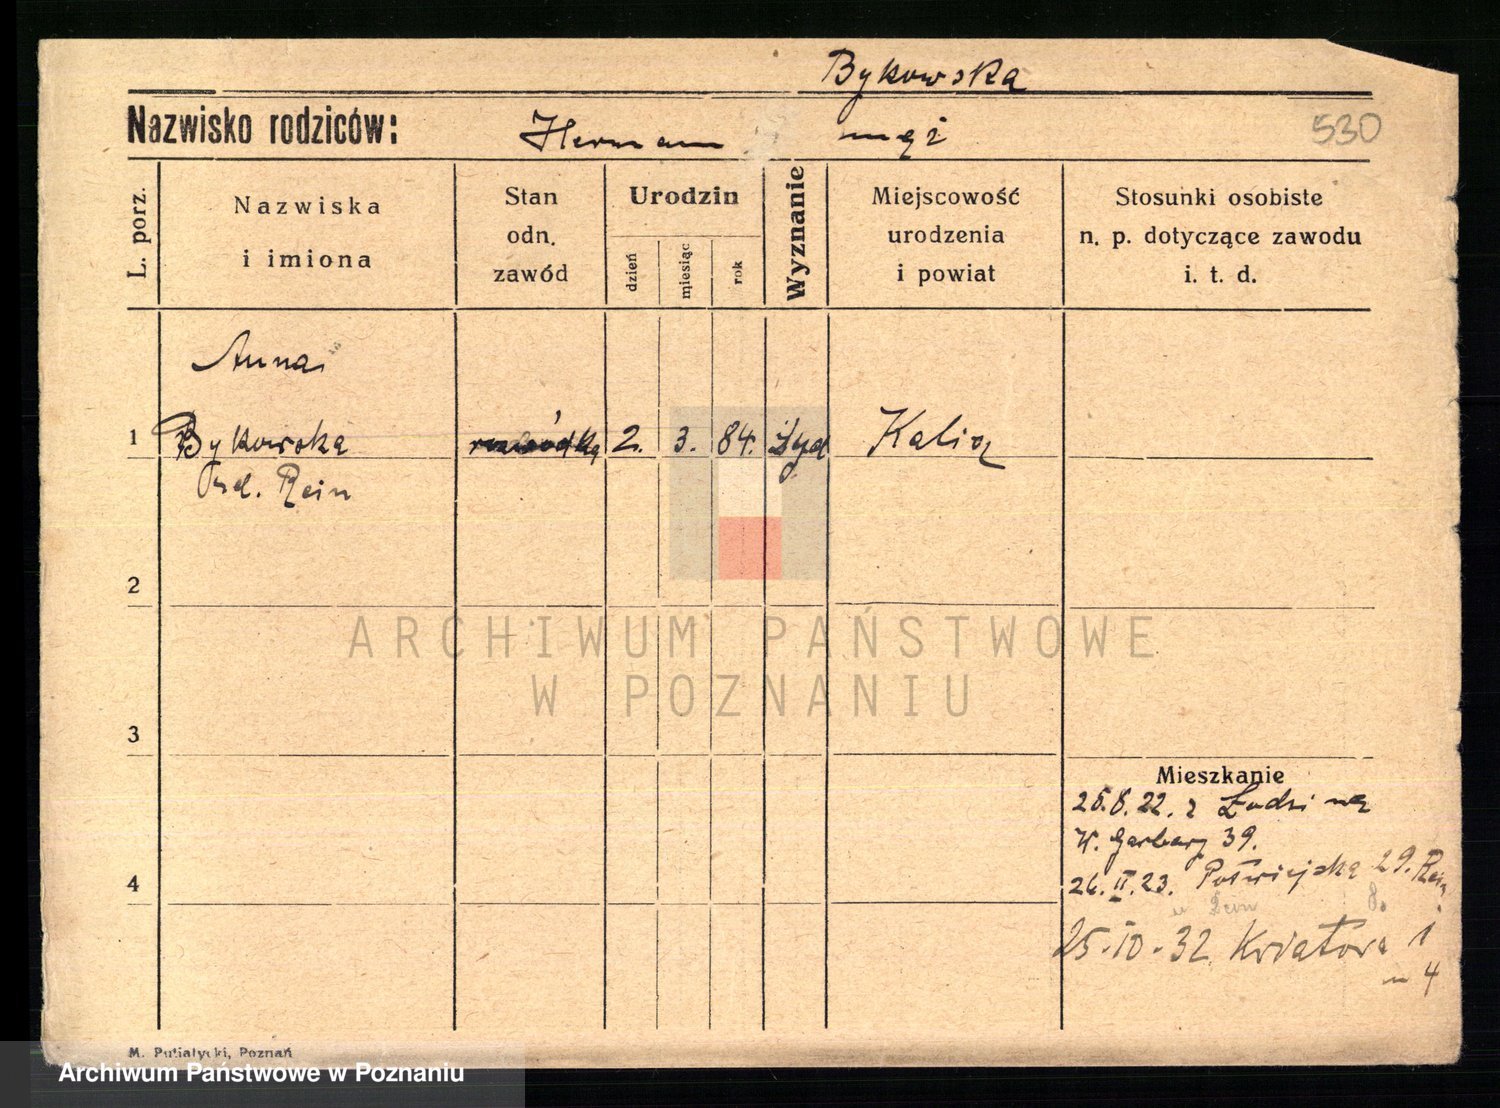 Bykowska
Nazwisko rodziców: Herman mąż 530
L. porz.
Nazwiska
i imiona
Stan
odn.
zawód
Urodzin
dzień
miesiąc
rok
Wyznanie
Miejscowość
urodzenia
i powiat
Stosunki osobiste
n. p. dotyczące zawodu
i. t. d.
Anna
1 Bykowska rozwódka 2. 3. 84. Żyd Kalisz
Rein
2
ARCHIWUM PAŃSTWOWE
W POZNANIU
3
Mieszkanie
25.8.22. z Łodzi na
W. Garbary 39.
4
26.II.23. Półwiejska 29. Rein
25-IV-32. Kwiatowa 1
m 4
M. Putiatycki, Poznań
Archiwum Państwowe w Poznaniu